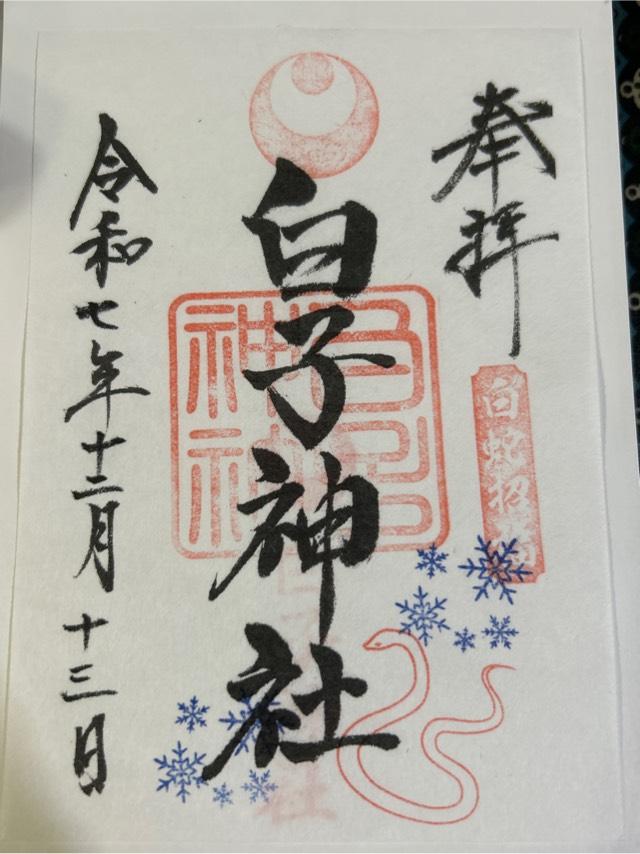 奉拝
白蛇招福
白子神社
令和七年十二月十三日